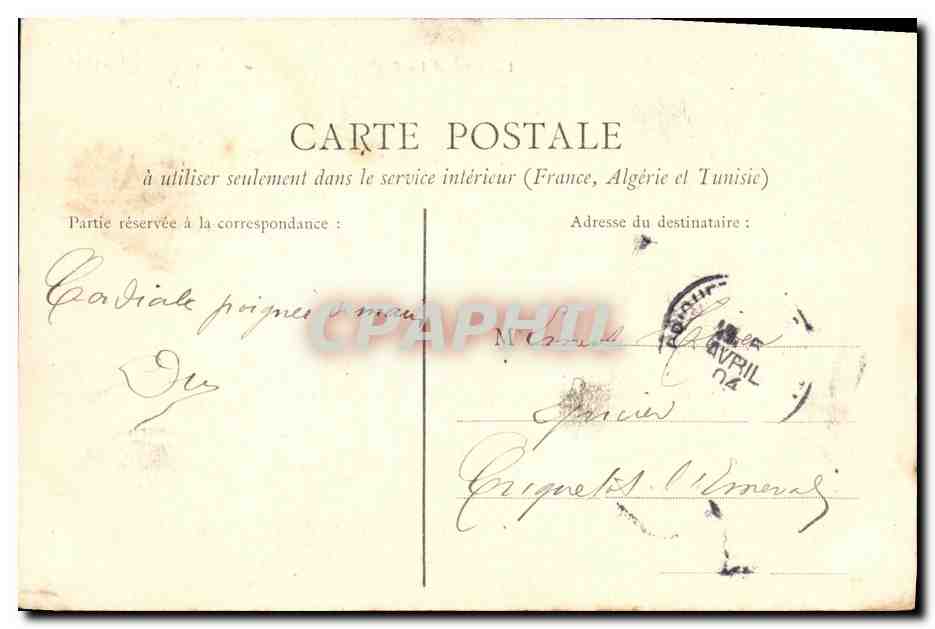 CARTE POSTALE
à utiliser seulement dans le service intérieur (France, Algérie et Tunisie)
Partie réservée à la correspondance :
Adresse du destinataire :
Cordiale poignée d main
CPAPHIL
M
AVRIL
04
Epicier
Criquetot l'Esneval